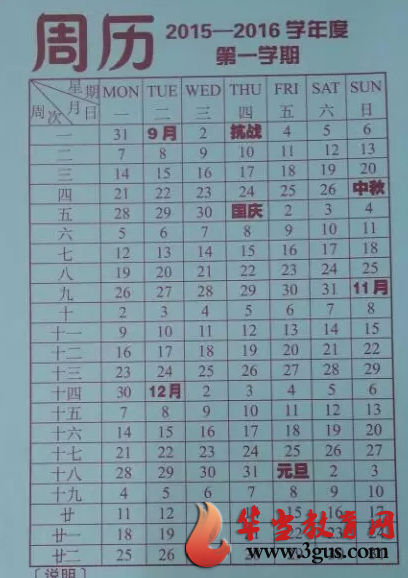 周历 2015—2016 学年度
第一学期
星期 月日 周次 MON TUE WED THU FRI SAT SUN
一 二 三 四 五 六 日
一 31 9月 2 抗战 4 5 6
二 7 8 9 10 11 12 13
三 14 15 16 17 18 19 20
四 21 22 23 24 25 26 中秋
五 28 29 30 国庆 2 3 4
六 5 6 7 8 9 10 11
七 12 13 14 15 16 17 18
八 19 20 21 22 23 24 25
九 26 27 28 29 30 31 11月
十 2 3 4 5 6 7 8
十一 9 10 11 12 13 14 15
十二 16 17 18 19 20 21 22
十三 23 24 25 26 27 28 29
十四 30 12月 2 3 4 5 6
十五 7 8 9 10 11 12 13
十六 14 15 16 17 18 19 20
十七 21 22 23 24 25 26 27
十八 28 29 30 31 元旦 2 3
十九 4 5 6 7 8 9 10
廿 11 12 13 14 15 16 17
廿一 18 19 22 23
廿二 25 26 28
华当教育网
www.3gus.com
〔说明〕